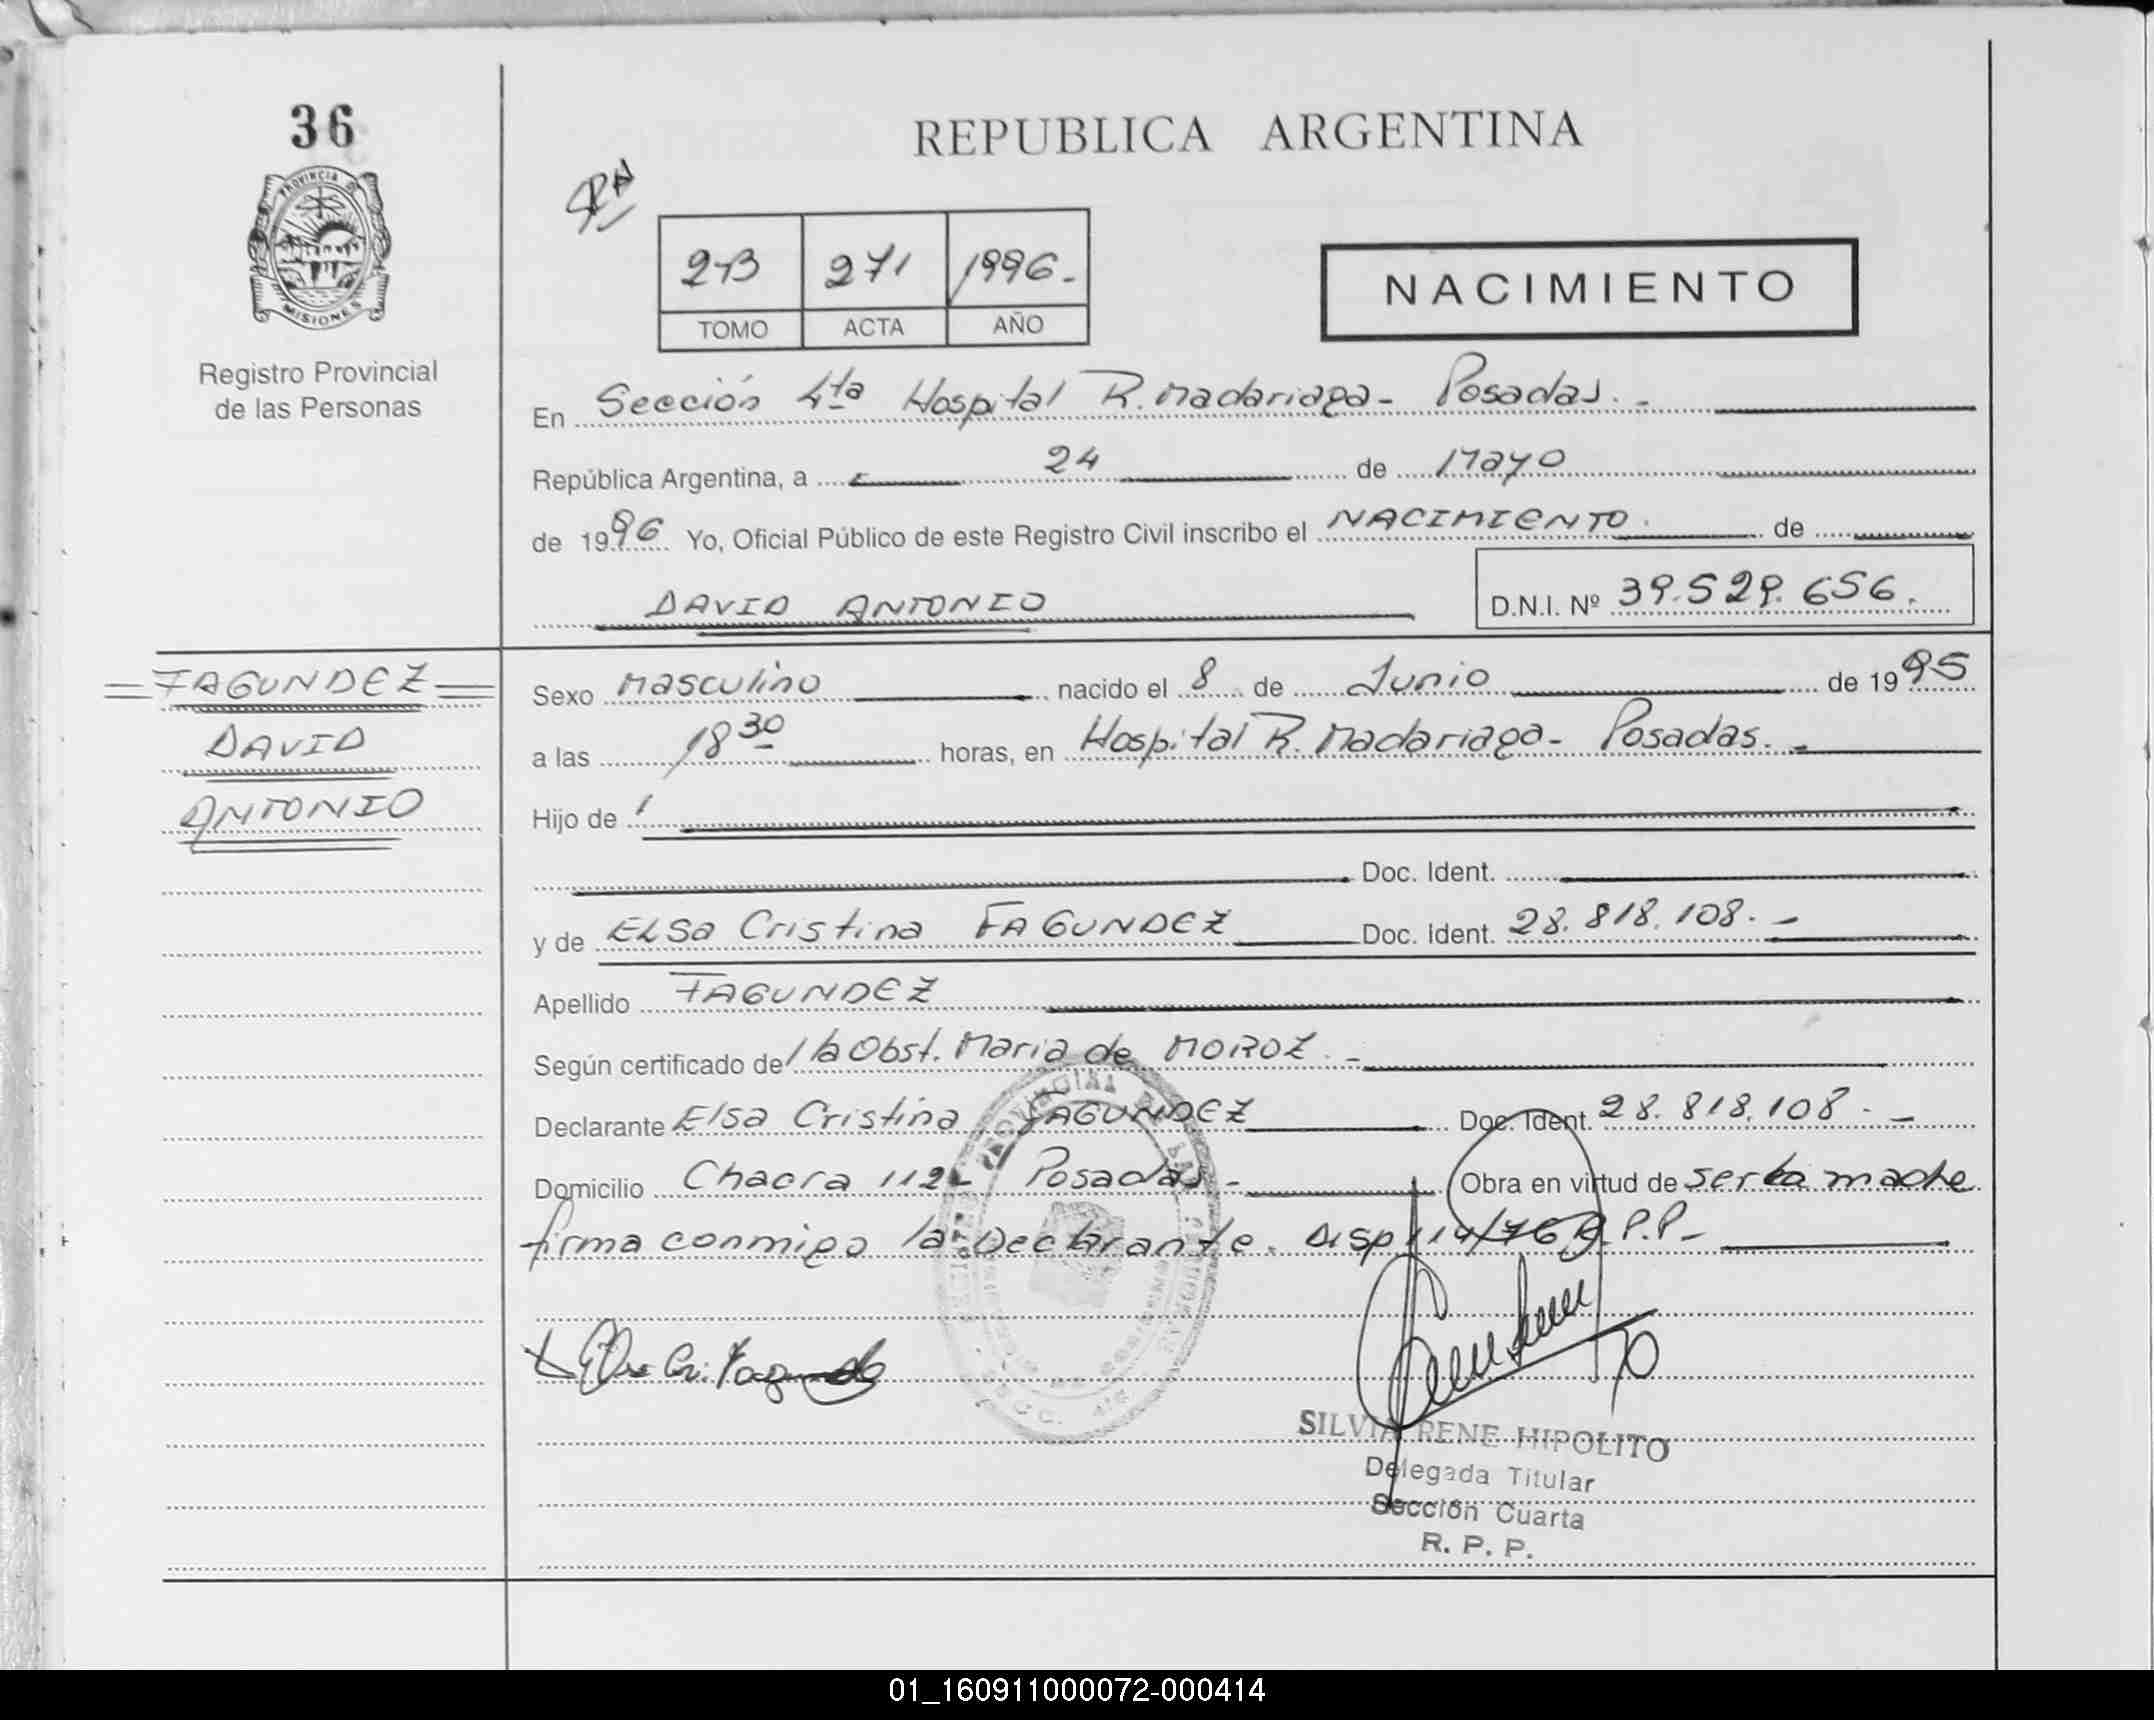 36
PROVINCIA DE
MISIONES
Registro Provincial
de las Personas
REPUBLICA ARGENTINA
2-B 271 1996.-
TOMO ACTA AÑO
NACIMIENTO
En Sección 4ta Hospital R. Madariaga- Posadas.-
República Argentina, a 24 de Mayo
de 1996 Yo, Oficial Público de este Registro Civil inscribo el NACIMIENTO. de
DAVID ANTONIO D.N.I. Nº 39.529.656.
FAGUNDEZ
DAVID
ANTONIO
Sexo masculino nacido el 8 de Junio de 1995
a las 18 30 horas, en Hospital R. Madariaga- Posadas.-
Hijo de
Doc. Ident.
y de ELSA Cristina FAGUNDEZ Doc. Ident. 28.818.108.-
Apellido FAGUNDEZ
Según certificado de la Obst. Maria de MOROZ.-
Declarante Elsa Cristina FAGUNDEZ Doc. Ident. 28.818.108.-
Domicilio Chacra 112- Posadas- Obra en virtud de ser la madre
firma conmigo la Declarante. Disp 114/76 R.P.P-
SILVIA RENE HIPOLITO
Delegada Titular
Sección Cuarta
R. P. P.
01_160911000072-000414